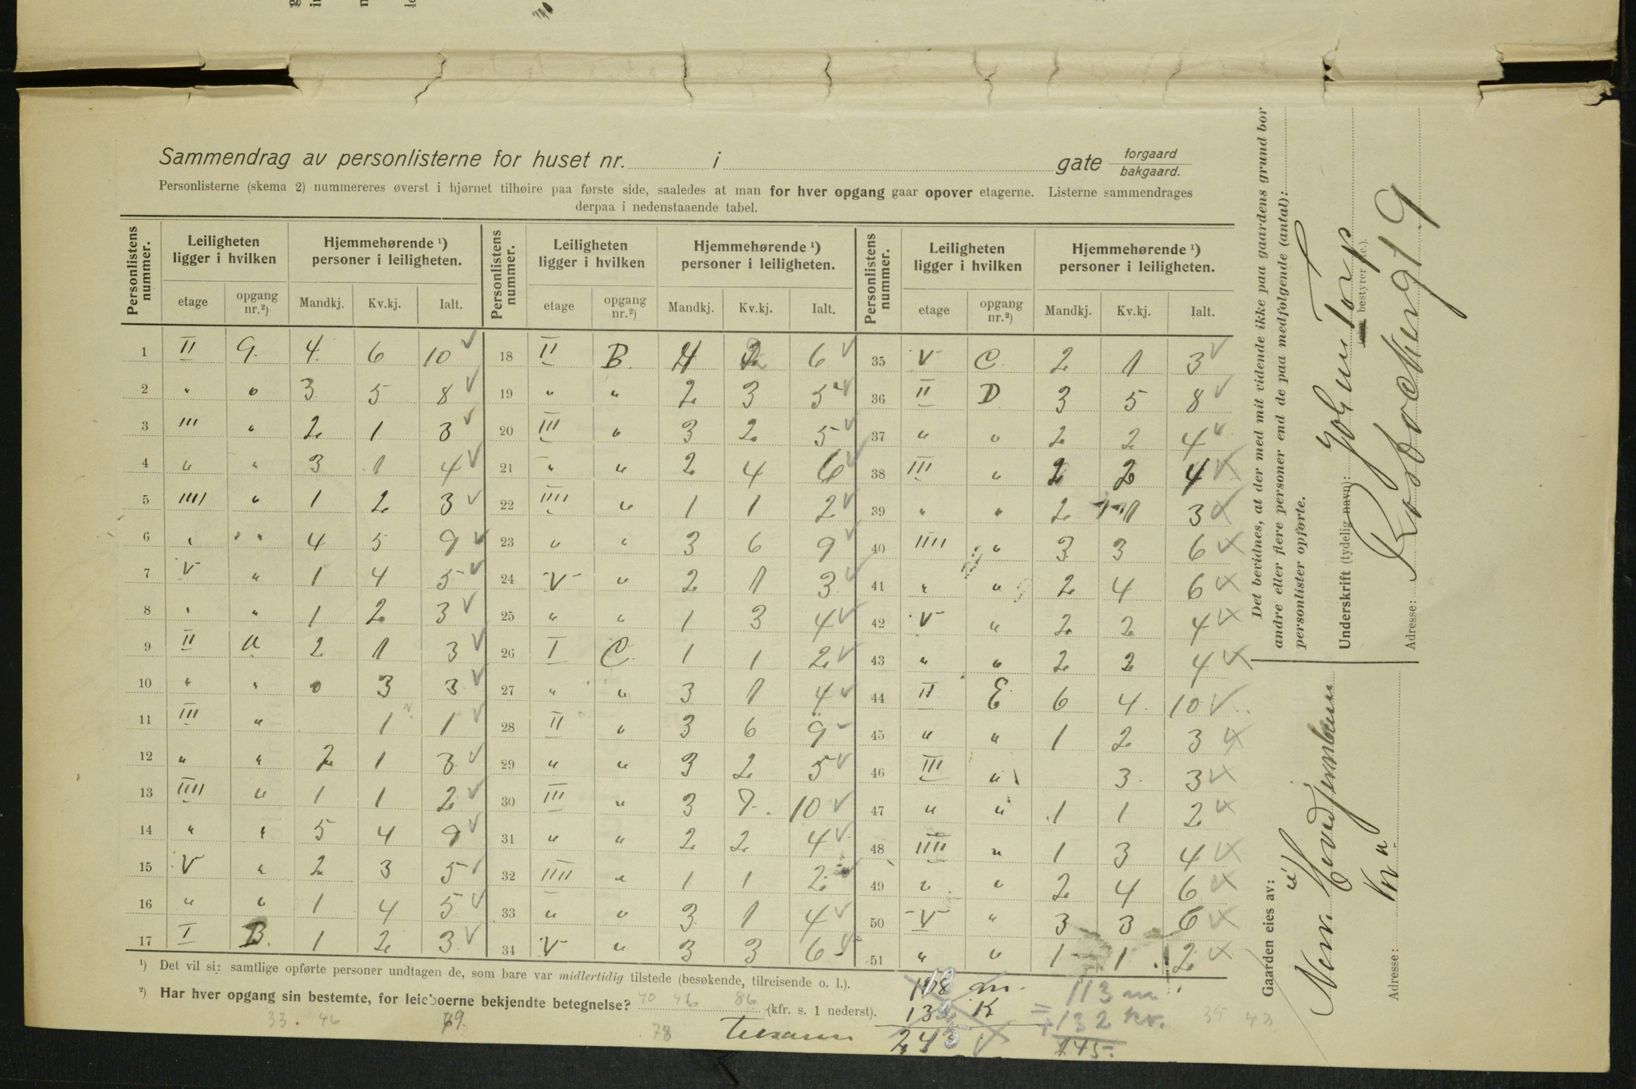 Sammendrag av personlisterne for huset nr. i gate forgaard bakgaard.
Personlisterne (skema 2) nummereres øverst i hjørnet tilhøire paa første side, saaledes at man for hver opgang gaar opover etagerne. Listerne sammendrages
derpaa i nedenstaaende tabel.
Personlistens nummer. Leiligheten ligger i hvilken Hjemmehørende ¹) personer i leiligheten. Personlistens nummer. Leiligheten ligger i hvilken Hjemmehørende ¹) personer i leiligheten. Personlistens nummer. Leiligheten ligger i hvilken Hjemmehørende ¹) personer i leiligheten.
etage opgang nr.²) Mandkj. Kv.kj. Ialt. etage opgang nr.²) Mandkj. Kv.kj. Ialt. etage opgang nr.²) Mandkj. Kv.kj. Ialt.
1 II 9. 4 6 10 ✓ 18 II B. 4 2 6 ✓ 35 V C. 2 1 3 ✓
2 " " 3 5 8 ✓ 19 " " 2 3 5 ✓ 36 II D 3 5 8 ✓
3 III " 2 1 3 ✓ 20 III " 3 2 5 ✓ 37 " " 2 2 4 ✓
4 " " 3 1 4 ✓ 21 " " 2 4 6 ✓ 38 III " 2 2 4 ✓
5 IIII " 1 2 3 ✓ 22 IIII " 1 1 2 ✓ 39 " " 2 1 3 ✓
6 " " 4 5 9 ✓ 23 " " 3 6 9 ✓ 40 IIII " 3 3 6 ✓
7 V " 1 4 5 ✓ 24 V " 2 1 3 ✓ 41 " " 2 4 6 ✓
8 " " 1 2 3 ✓ 25 " " 1 3 4 ✓ 42 V " 2 2 4 ✓
9 II a 2 1 3 ✓ 26 I C. 1 1 2 ✓ 43 " " 2 2 4 ✓
10 " " 0 3 3 ✓ 27 " " 3 1 4 ✓ 44 II E 6 4 10 ✓
11 III " 1 1 ✓ 28 II " 3 6 9 ✓ 45 " " 1 2 3 ✓
12 " " 2 1 3 ✓ 29 " " 3 2 5 ✓ 46 III " 3 3 ✓
13 IIII " 1 1 2 ✓ 30 III " 3 7. 10 ✓ 47 " " 1 1 2 ✓
14 " " 5 4 9 ✓ 31 " " 2 2 4 ✓ 48 IIII " 1 3 4 ✓
15 V " 2 3 5 ✓ 32 IIII " 1 1 2 ✓ 49 " " 2 4 6 ✓
16 " " 1 4 5 ✓ 33 " " 3 1 4 ✓ 50 V " 3 3 6 ✓
17 I B. 1 2 3 ✓ 34 V " 3 3 6 ✓ 51 " " 1 1 2 ✓
¹) Det vil si: samtlige opførte personer undtagen de, som bare var midlertidig tilstede (besøkende, tilreisende o. l.).
²) Har hver opgang sin bestemte, for leieboerne bekjendte betegnelse? (kfr. s. 1 nederst).
40 46 86
33. 46 79. 78
m. 113 m
K = 132 kv.
243 245-
39 43
Det bevidnes, at der med mit vidende ikke paa gaardens grund bor
andre eller flere personer end de paa medfølgende (antal):
personlister opførte.
Underskrift (tydelig navn): Johan Torp
bestyrer
Adresse: 9
Gaarden eies av:
Adresse: